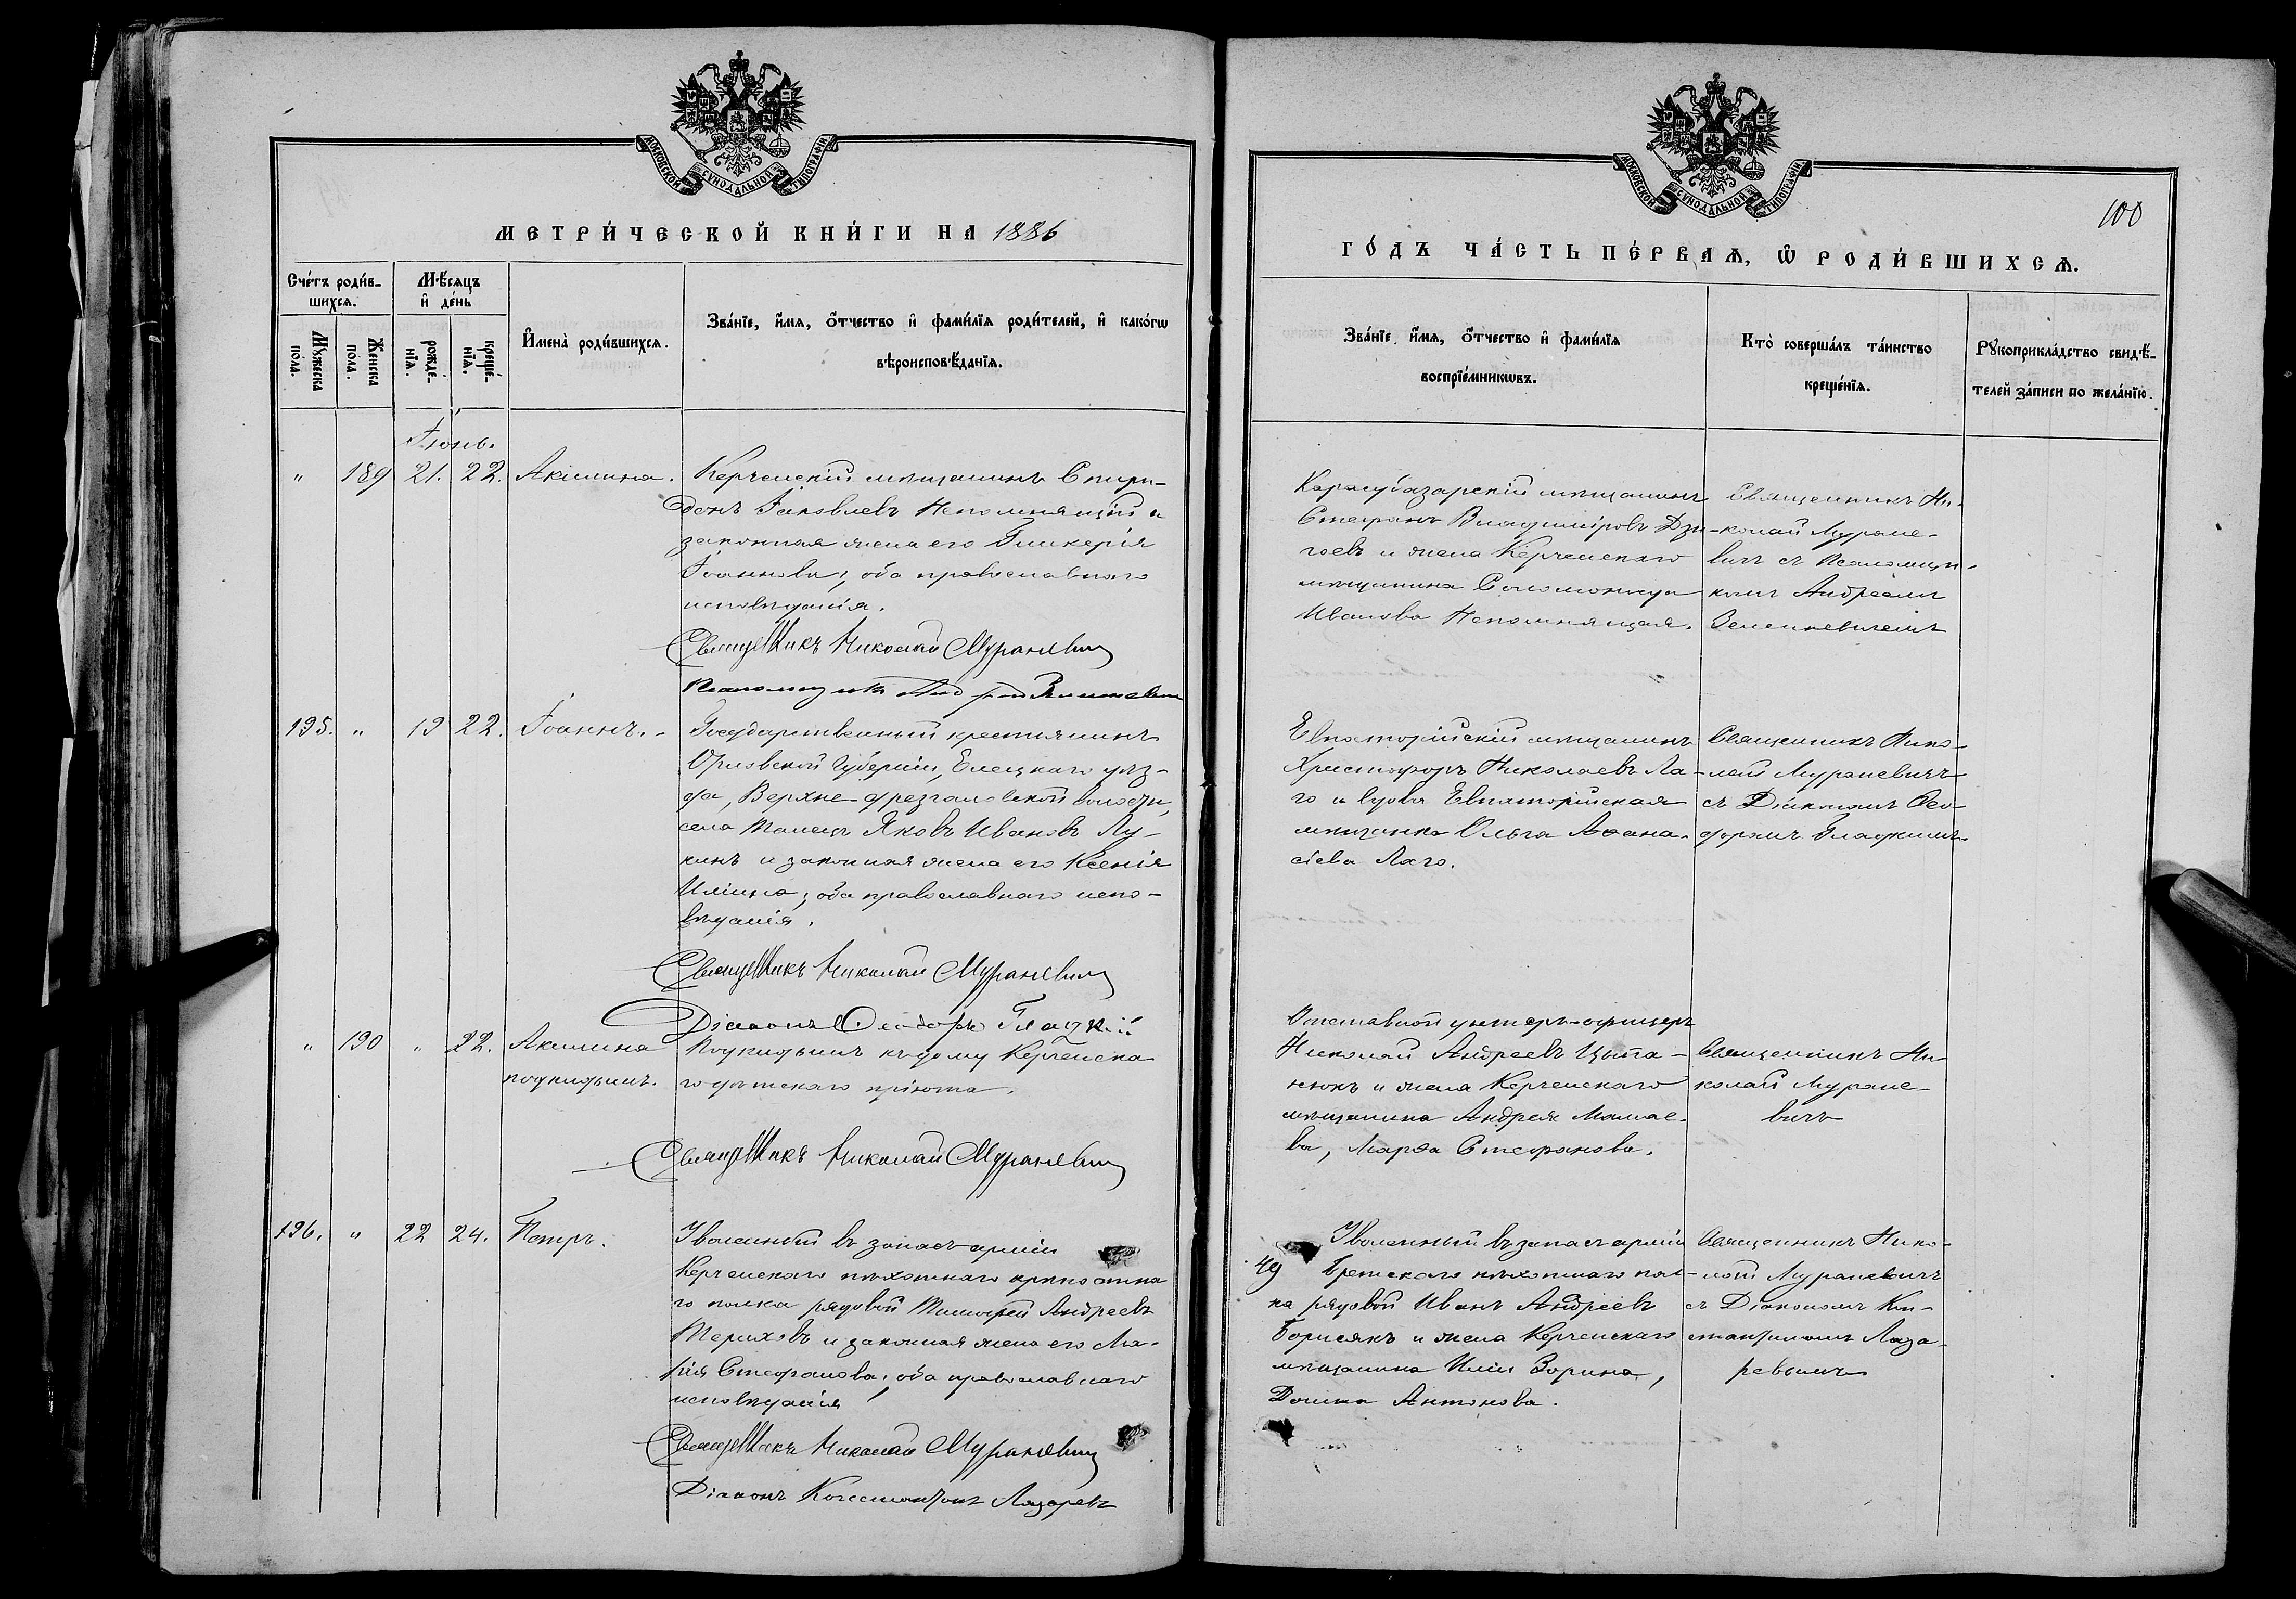 МОСКОВСКОЙ СѴНОДАЛЬНОЙ ТИПОГРАФІИ.
МЕТРИ́ЧЕСКОЙ КНИ́ГИ НА 1886
Сче́тъ роди́в-
шихся.
Мѣ́сяцъ
и҆ де́нь
Мꙋ́жеска
по́ла.
Же́нска
по́ла.
рожде́-
нїѧ.
креще́-
нїѧ.
И҆мена̀ роди́вшихсѧ.
Зва́нїе, и҆́мѧ, ѻ҆́тчество и҆ фами́лїѧ роди́телей, и҆ како́гѡ
вѣроисповѣ́данїѧ.
Іюнь.
" 189 21. 22. Акилина.
Керченскій мѣщанинъ Спири-
донъ Іаковлевъ Непомнящій и
законная жена его Гликерія
Іоаннова; оба православнаго
исповѣданія.
Священникъ Николай Мураневич
195. " 19 22. Іоаннъ.
Государственный крестьянинъ
Орловской Губерніи, Елецкаго уѣз-
да, Верхне-Дрезгаловской волости,
села Талецъ Яковъ Ивановъ Лу-
кинъ и законная жена его Ксенія
Иліина; оба православнаго испо-
вѣданія.
Священникъ Николай Мураневич
Діаконъ Ѳеодоръ Гладкій
" 190 " 22. Акилина
подкидышъ.
Подкидышъ къ дому Керченска-
го дѣтскаго пріюта.
Священникъ Николай Мураневич
196. " 22 24. Петръ.
Уволенный въ запасъ арміи
Керченскаго пѣхотнаго крѣпостна
го полка рядовой Тимофей Андреевъ
Териховъ и законная жена его Ма-
рія Стефанова, оба православнаго
исповѣданія
Священникъ Николай Мураневич
Діаконъ Константинъ Лазаревъ
МОСКОВСКОЙ СѴНОДАЛЬНОЙ ТИПОГРАФІИ.
100
ГО́ДЪ ЧА́СТЬ ПЕ́РВАѦ, Ѡ҆ РОДИ́ВШИХСѦ.
Зва́нїе, и҆́мѧ, ѻ҆́тчество и҆ фами́лїѧ
воспрїе́мникѡвъ.
Кто̀ соверша́лъ та́инство
креще́нїѧ.
Рꙋкоприкла́дство свидѣ́-
телей за́писи по жела́нїю.
Карасубазарскій мѣщанинъ
Стефанъ Владиміровъ Дзи-
гоевъ и жена Керченскаго
мѣщанина Соломонида
Иванова Непомнящая.
Священникъ Ни-
колай Муране-
вичъ съ Псаломщи-
комъ Андреемъ
Зелинкевичемъ
Евпаторійскій мѣщанинъ
Христофоръ Николаевъ Ла-
го и вдова Евпаторійская
мѣщанка Ольга Аѳана-
сіева Лаго.
Священникъ Нико-
лай Мураневичъ
съ Діакономъ Ѳео-
доромъ Гладкимъ
Отставной унтеръ-офицеръ
Николай Андреевъ Цыпа-
нюкъ и жена Керченскаго
мѣщанина Андрея Мамае-
ва, Марѳа Стефанова.
Священникъ Ни-
колай Муране-
вичъ
Уволенный въ запасъ арміи
49 Брестскаго пѣхотнаго пол-
ка рядовой Иванъ Андреевъ
Борисякъ и жена Керченскаго
мѣщанина Иліи Зорина,
Домна Антонова.
Священникъ Нико-
лай Мураневичъ
съ Діакономъ Кон-
стантиномъ Лаза-
ревымъ